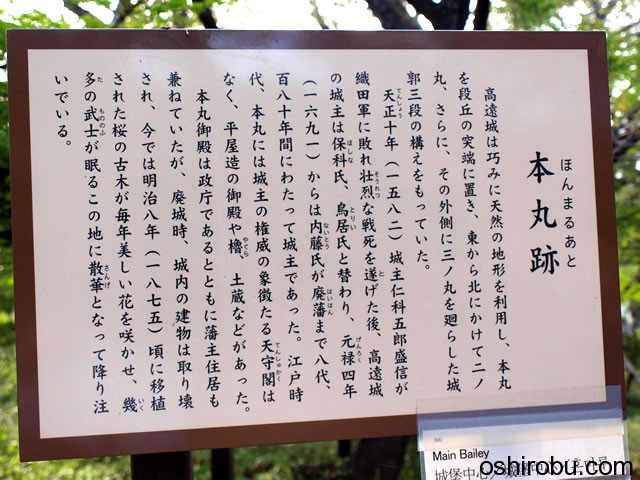 本丸跡
ほんまるあと
高遠城は巧みに天然の地形を利用し、本丸
を段丘の突端に置き、東から北にかけて二ノ
丸、さらに、その外側に三ノ丸を廻らした城
郭三段の構えをもっていた。
天正十年（一五八二）城主仁科五郎盛信が
てんしょう
織田軍に敗れ壮烈な戦死を遂げた後、高遠城
そうれつ と
の城主は保科氏、鳥居氏と替わり、元禄四年
ほしな とりい げんろく
（一六九一）からは内藤氏が廃藩まで八代、
ないとう はいはん
百八十年間にわたって城主であった。江戸時
代、本丸には城主の権威の象徴たる天守閣は
てんしゅかく
なく、平屋造の御殿や櫓、土蔵などがあった。
やぐら
本丸御殿は政庁であるとともに藩主住居も
兼ねていたが、廃城時、城内の建物は取り壊
され、今では明治八年（一八七五）頃に移植
された桜の古木が毎年美しい花を咲かせ、幾
いく
多の武士が眠るこの地に散華となって降り注
た もののふ さんげ
いでいる。
Main Bailey
oshirobu.com